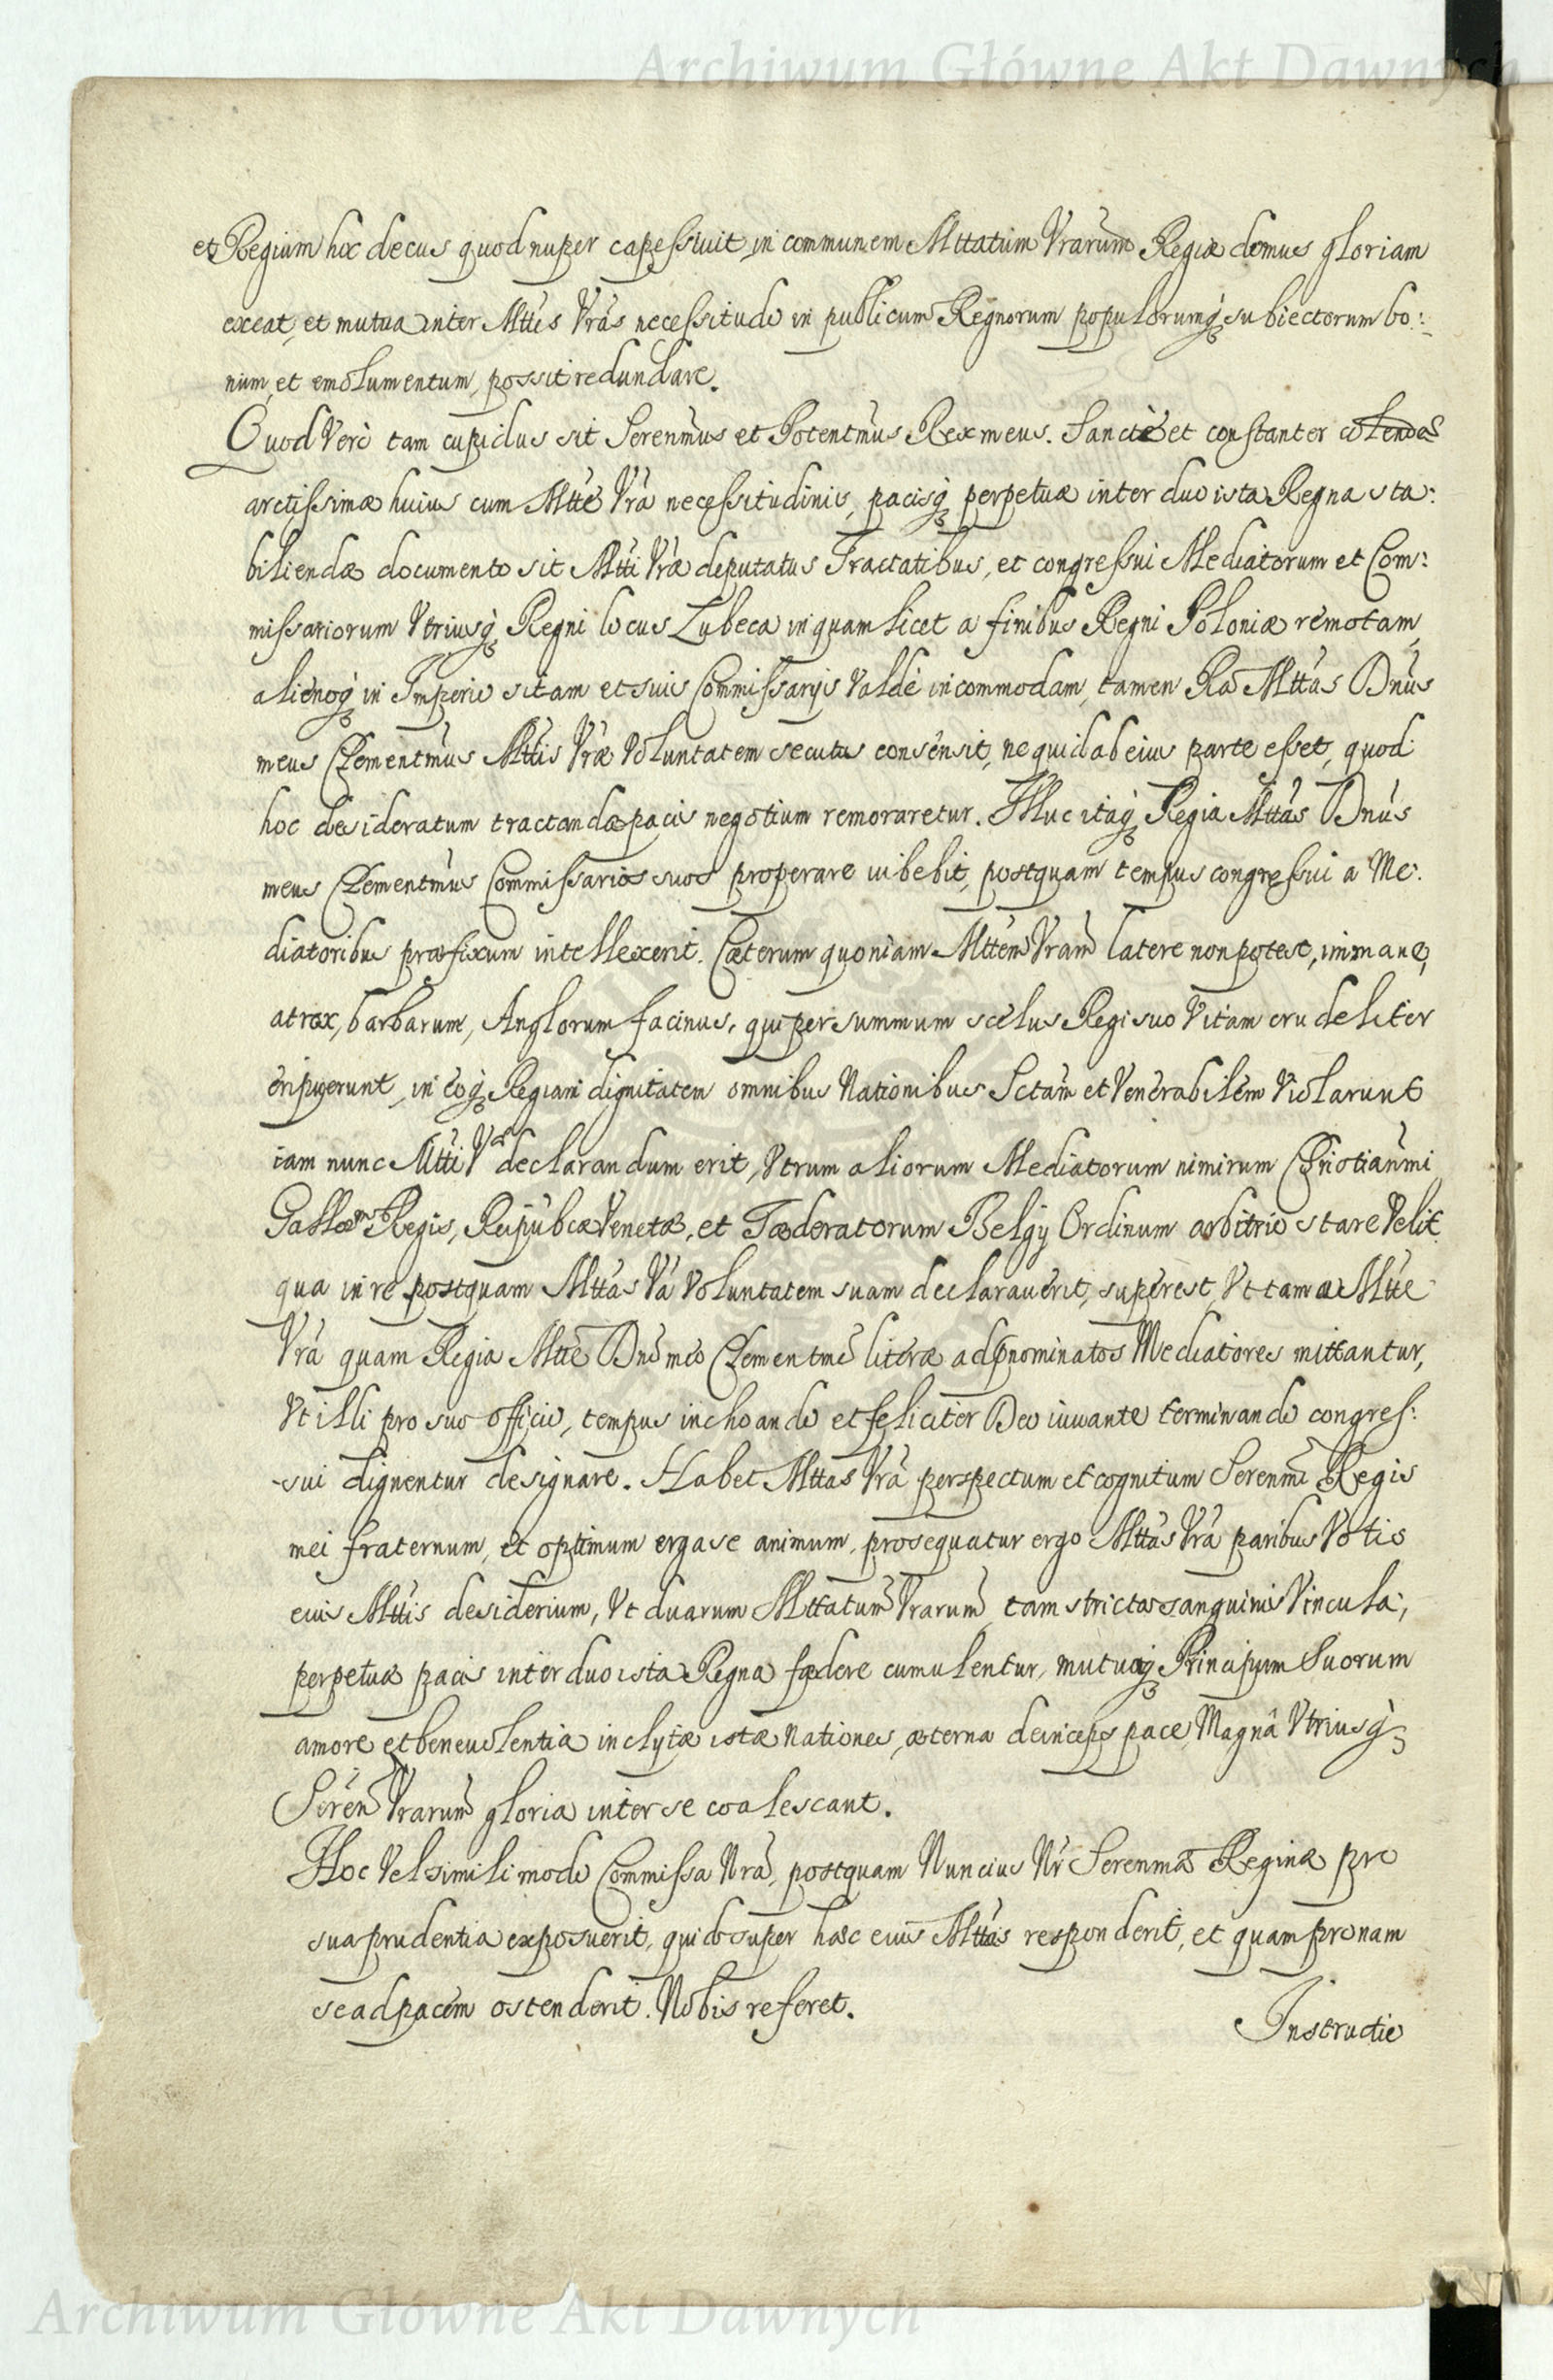 Archiwum Główne Akt Dawnych
et Regium hoc decus quod nuper capessiuit in communem Mttatum Vrarum Regiæ domus gloriam
exeat, et mutua inter Mttes Vras necessitudo in publicum Regnorum populorumq subiectorum bo:
num, et emolumentum, possit redundare.
Quod Vero tam cupidus sit Serenmus et Potentmus Rex meus. Sanctè et constanter colendæ
arctissimæ huius cum Mtte Vra necessitudinis, pacisq perpetuæ inter duo ista Regna sta:
biliendæ documento sit Mtti Vræ deputatus Tractatibus, et congressui Mediatorum et Com:
missariorum Vtriusq Regni locus Lubeca in quam licet a finibus Regni Poloniæ remotam,
alienoq in Imperio sitam et suis Commissarijs Valdè incommodam, tamen Ra Mttas Dnus
meus Clementmus Mttis Vræ Voluntatem secutus consensit, ne quid ab eius parte esset, quod
hoc desideratum tractandæ pacis negotium remoraretur. Illuc itaq Regia Mttas Dnus
meus Clementmus Commissarios suos properare iubebit, postquam tempus congressui a Me:
diatoribus præfixum intellexerit. Cæterum quoniam Mttem Vram latere non potest, immane,
atrox, barbarum, Anglorum facinus, qui per summum scelus Regi suo Vitam crudeliter
eripuerunt, in eoq Regiam dignitatem omnibus Nationibus Sctam et Venerabilem Violarunt
iam nunc Mtti Væ declarandum erit, Vtrum aliorum Mediatorum nimirum Christianmi
Galloru Regis, Reipubcæ Venetæ, et Fœderatorum Belgy Ordinum arbitrio stare Velit
qua in re postquam Mttas Va Voluntatem suam declarauerit, superest, Vt tam a Mtte
Vra quam Regia Mtte Dno meo Clementmo literæ ad pnominatos Mediatores mittantur,
Vt illi pro suo officio, tempus inchoando et feliciter Deo iuuante terminando congres:
sui dignentur designare. Habet Mttas Vra perspectum et cognitum Serenmi Regis
mei fraternum, et optimum erga se animum, prosequatur ergo Mttas Vra paribus Votis
eius Mttis desiderium, Vt duarum Mttatum Vrarum, tam stricta sanguinis Vincula,
perpetuæ pacis inter duo ista Regna fœdere cumulentur, mutuoq Principum Suorum
amore et beneuolentia inclytæ istæ Nationes, æterna deinceps pace, Magnâ Vtriusq
Seren Vrarum gloria inter se coalescant.
Hoc Vel simili modo Commissa Nra, postquam Nuncius Nr Serenmæ Reginæ pro
sua prudentia exposuerit, quid super hæc eius Mttas responderit, et quam pronam
se ad pacem ostenderit. Nobis referet.
Instructio
Archiwum Główne Akt Dawnych